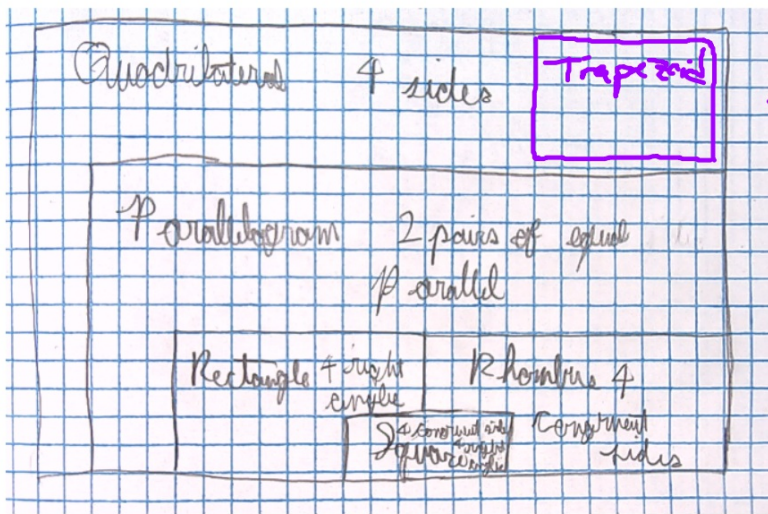 Quadrilateral 4 sides
Trapezoid
Parallelogram 2 pairs of equal
parallel
Rectangle 4 right
angles
Rhombus 4
congruent
sides
4 congruent sides
4 right
Square angles